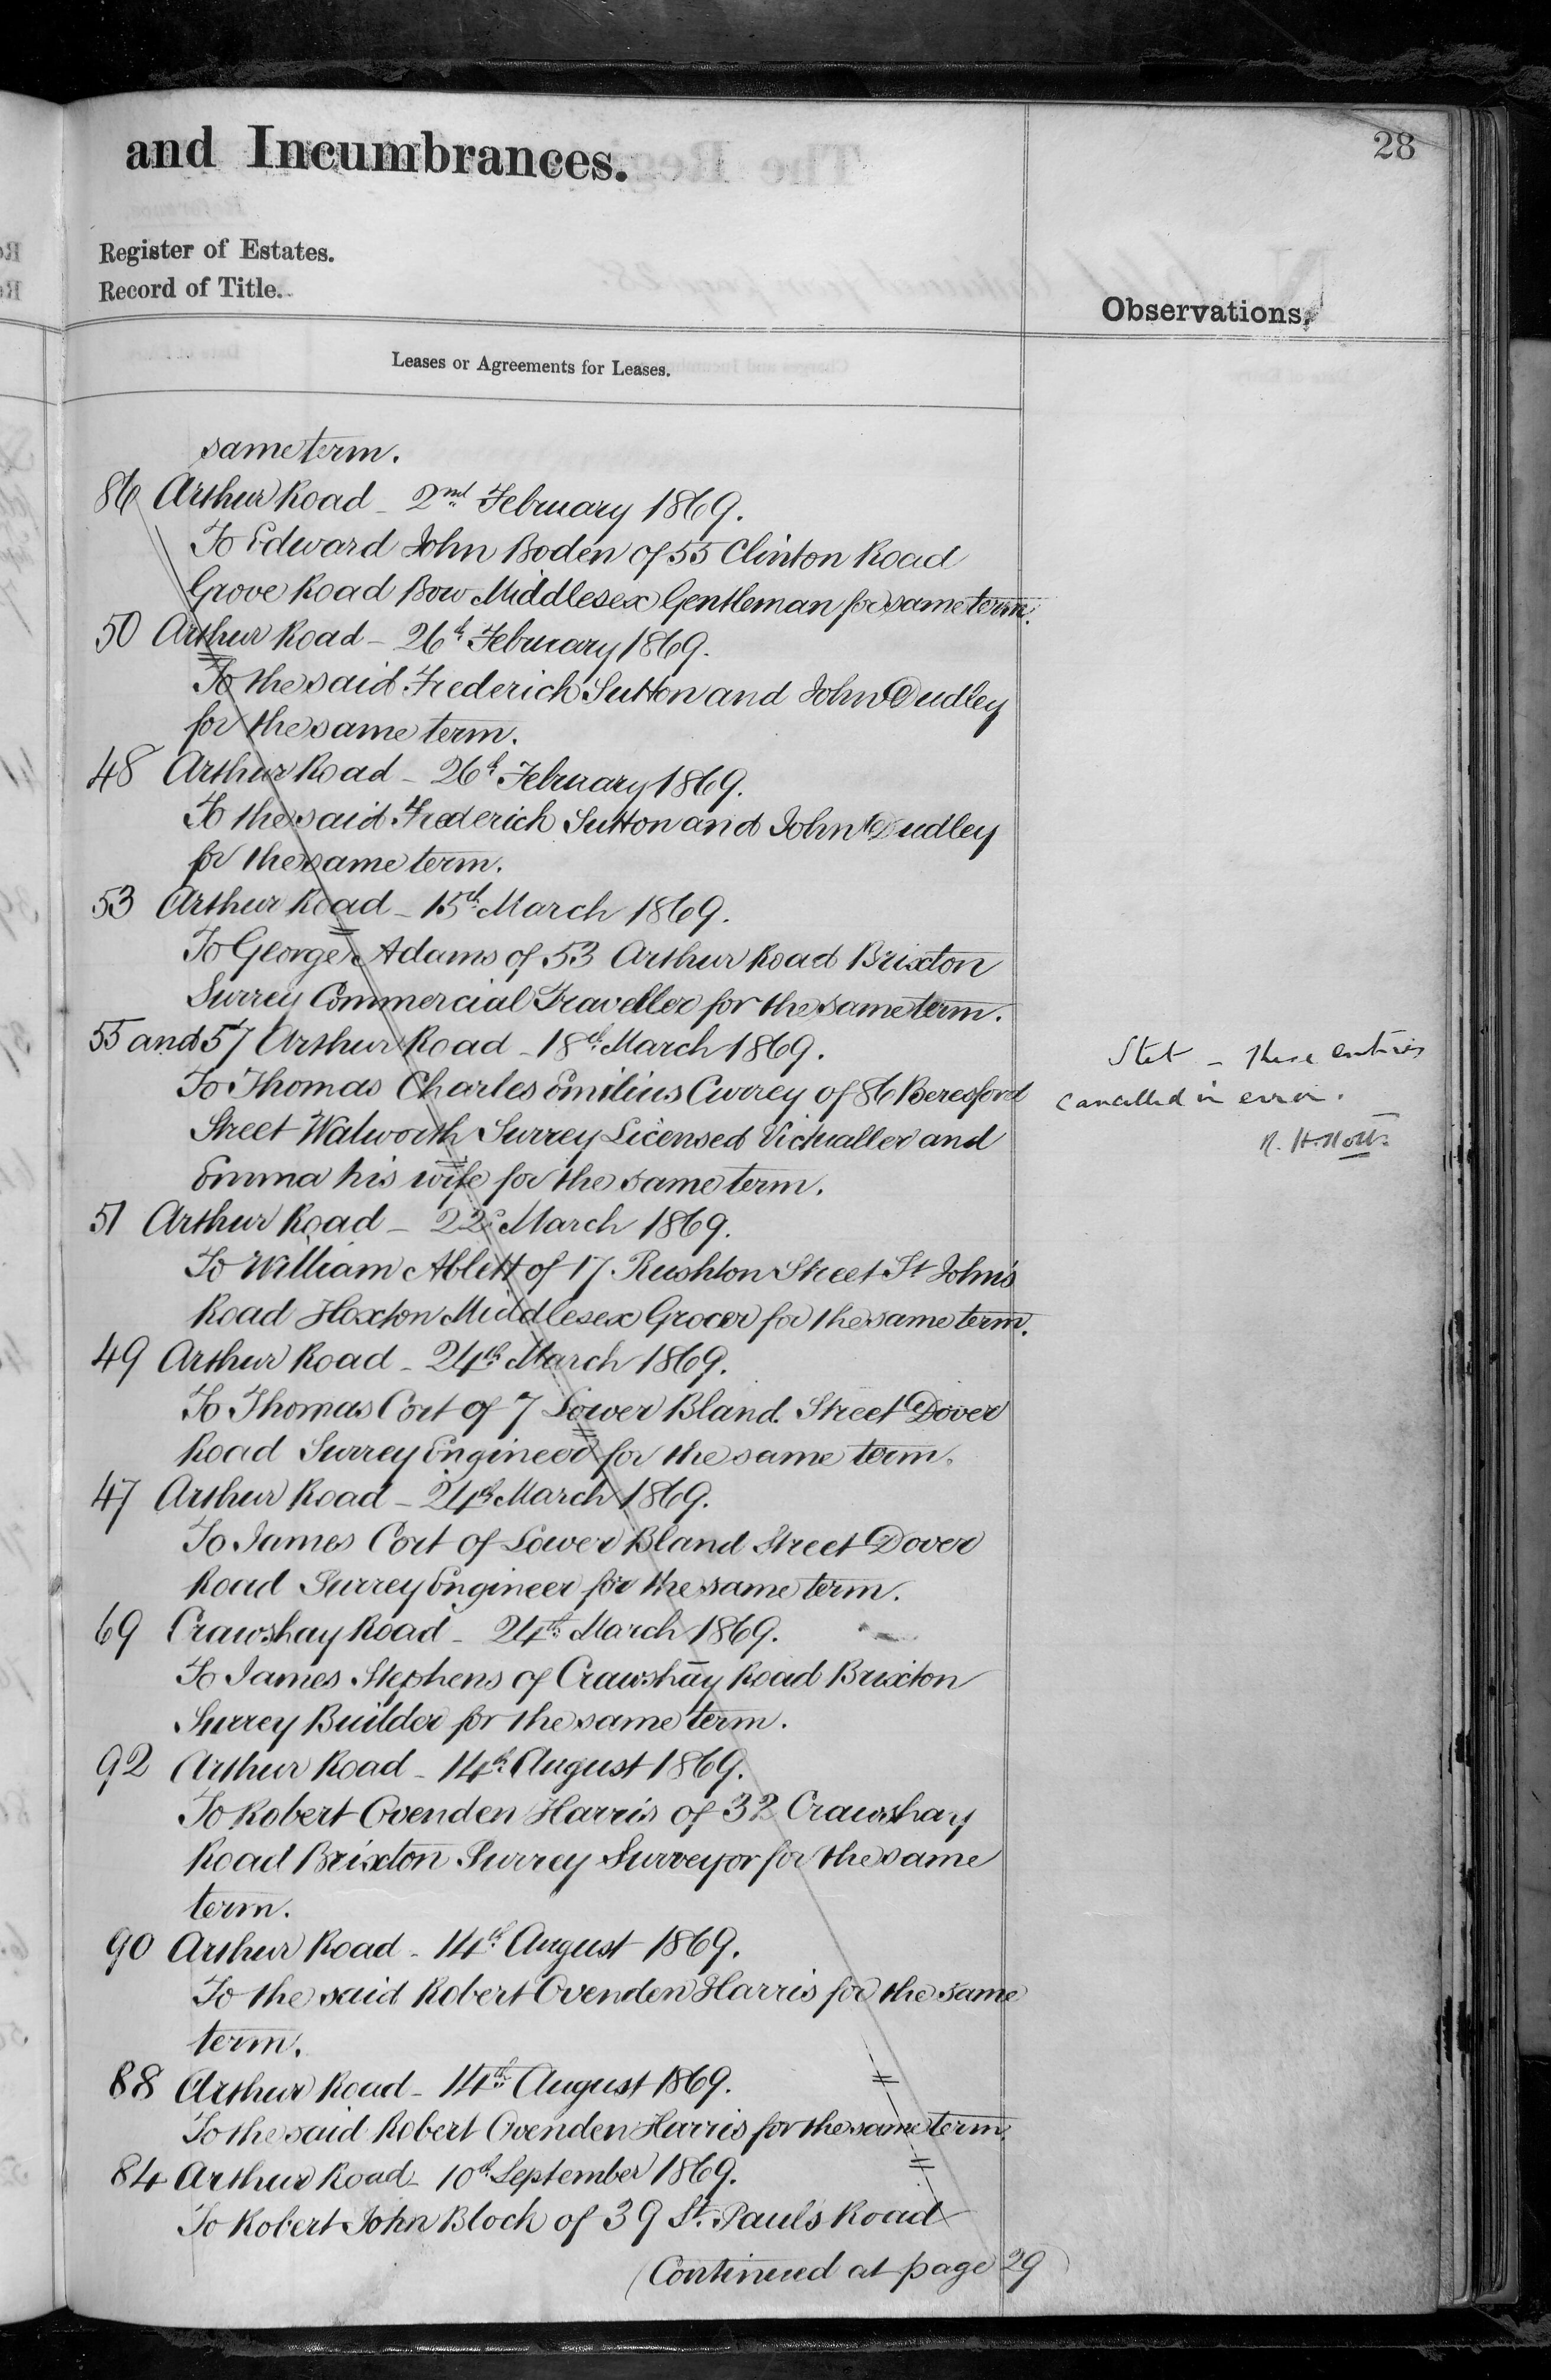 28
and Incumbrances.
Register of Estates.
Record of Title.
Observations.
Leases or Agreements for Leases.
same term.
86 Arthur Road - 2nd February 1869.
To Edward John Boden of 55 Clinton Road
Grove Road Bow Middlesex Gentleman for same term.
50 Arthur Road - 26th February 1869.
To the said Frederick Sutton and John Dudley
for the same term.
48 Arthur Road - 26th February 1869.
To the said Frederick Sutton and John Dudley
for the same term.
53 Arthur Road - 15th March 1869.
To George Adams of 53 Arthur Road Brixton
Surrey Commercial Traveller for the same term.
55 and 57 Arthur Road - 18th March 1869.
To Thomas Charles Emilius Currey of 86 Beresford
Street Walworth Surrey Licensed Victualler and
Emma his wife for the same term.
Stet - these entries
cancelled in error.
51 Arthur Road - 22d March 1869.
To William Ablett of 17 Rushton Street St John's
Road Hoxton Middlesex Grocer for the same term.
49 Arthur Road - 24th March 1869.
To Thomas Cort of 7 Lower Bland Street Dover
Road Surrey Engineer for the same term.
47 Arthur Road - 24th March 1869.
To James Cort of Lower Bland Street Dover
Road Surrey Engineer for the same term.
69 Crawshay Road - 24th March 1869.
To James Stephens of Crawshay Road Brixton
Surrey Builder for the same term.
92 Arthur Road - 14th August 1869.
To Robert Ovenden Harris of 32 Crawshay
Road Brixton Surrey Surveyor for the same
term.
90 Arthur Road - 14th August 1869.
To the said Robert Ovenden Harris for the same
term.
88 Arthur Road - 14th August 1869.
To the said Robert Ovenden Harris for the same term.
84 Arthur Road - 10th September 1869.
To Robert John Bloch of 39 St. Paul's Road
(Continued at page 29)